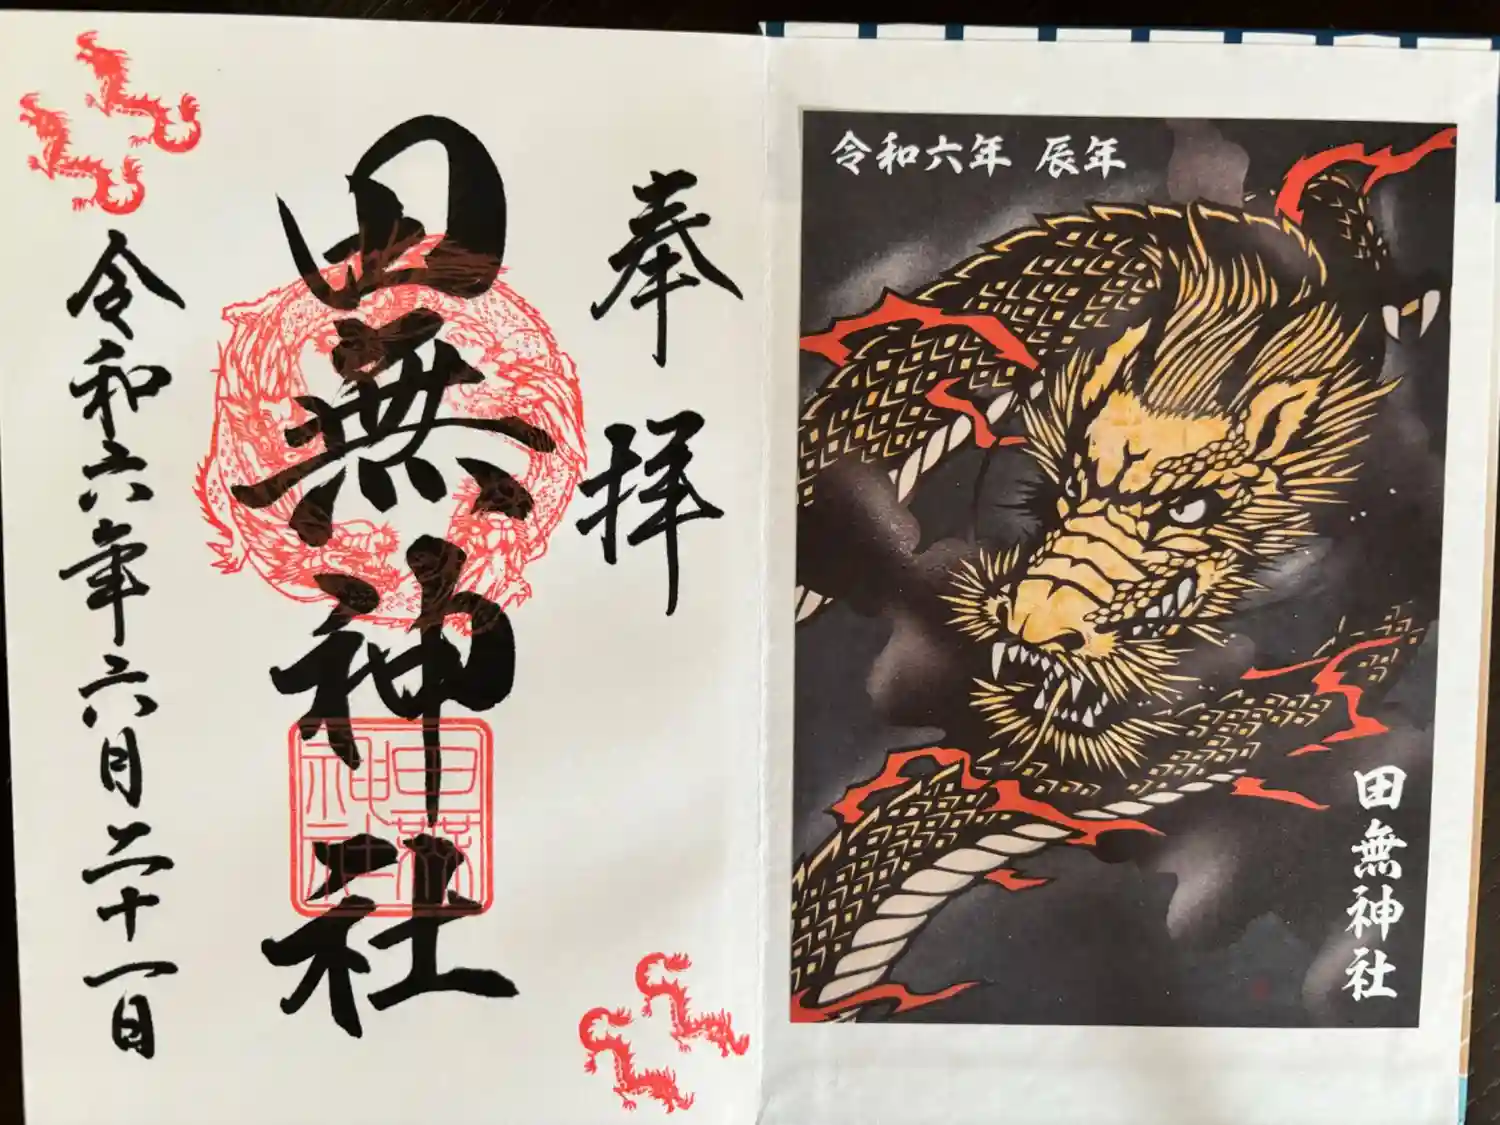 奉拝
田無神社
令和六年六月二十一日
田無神社
令和六年 辰年
田無神社